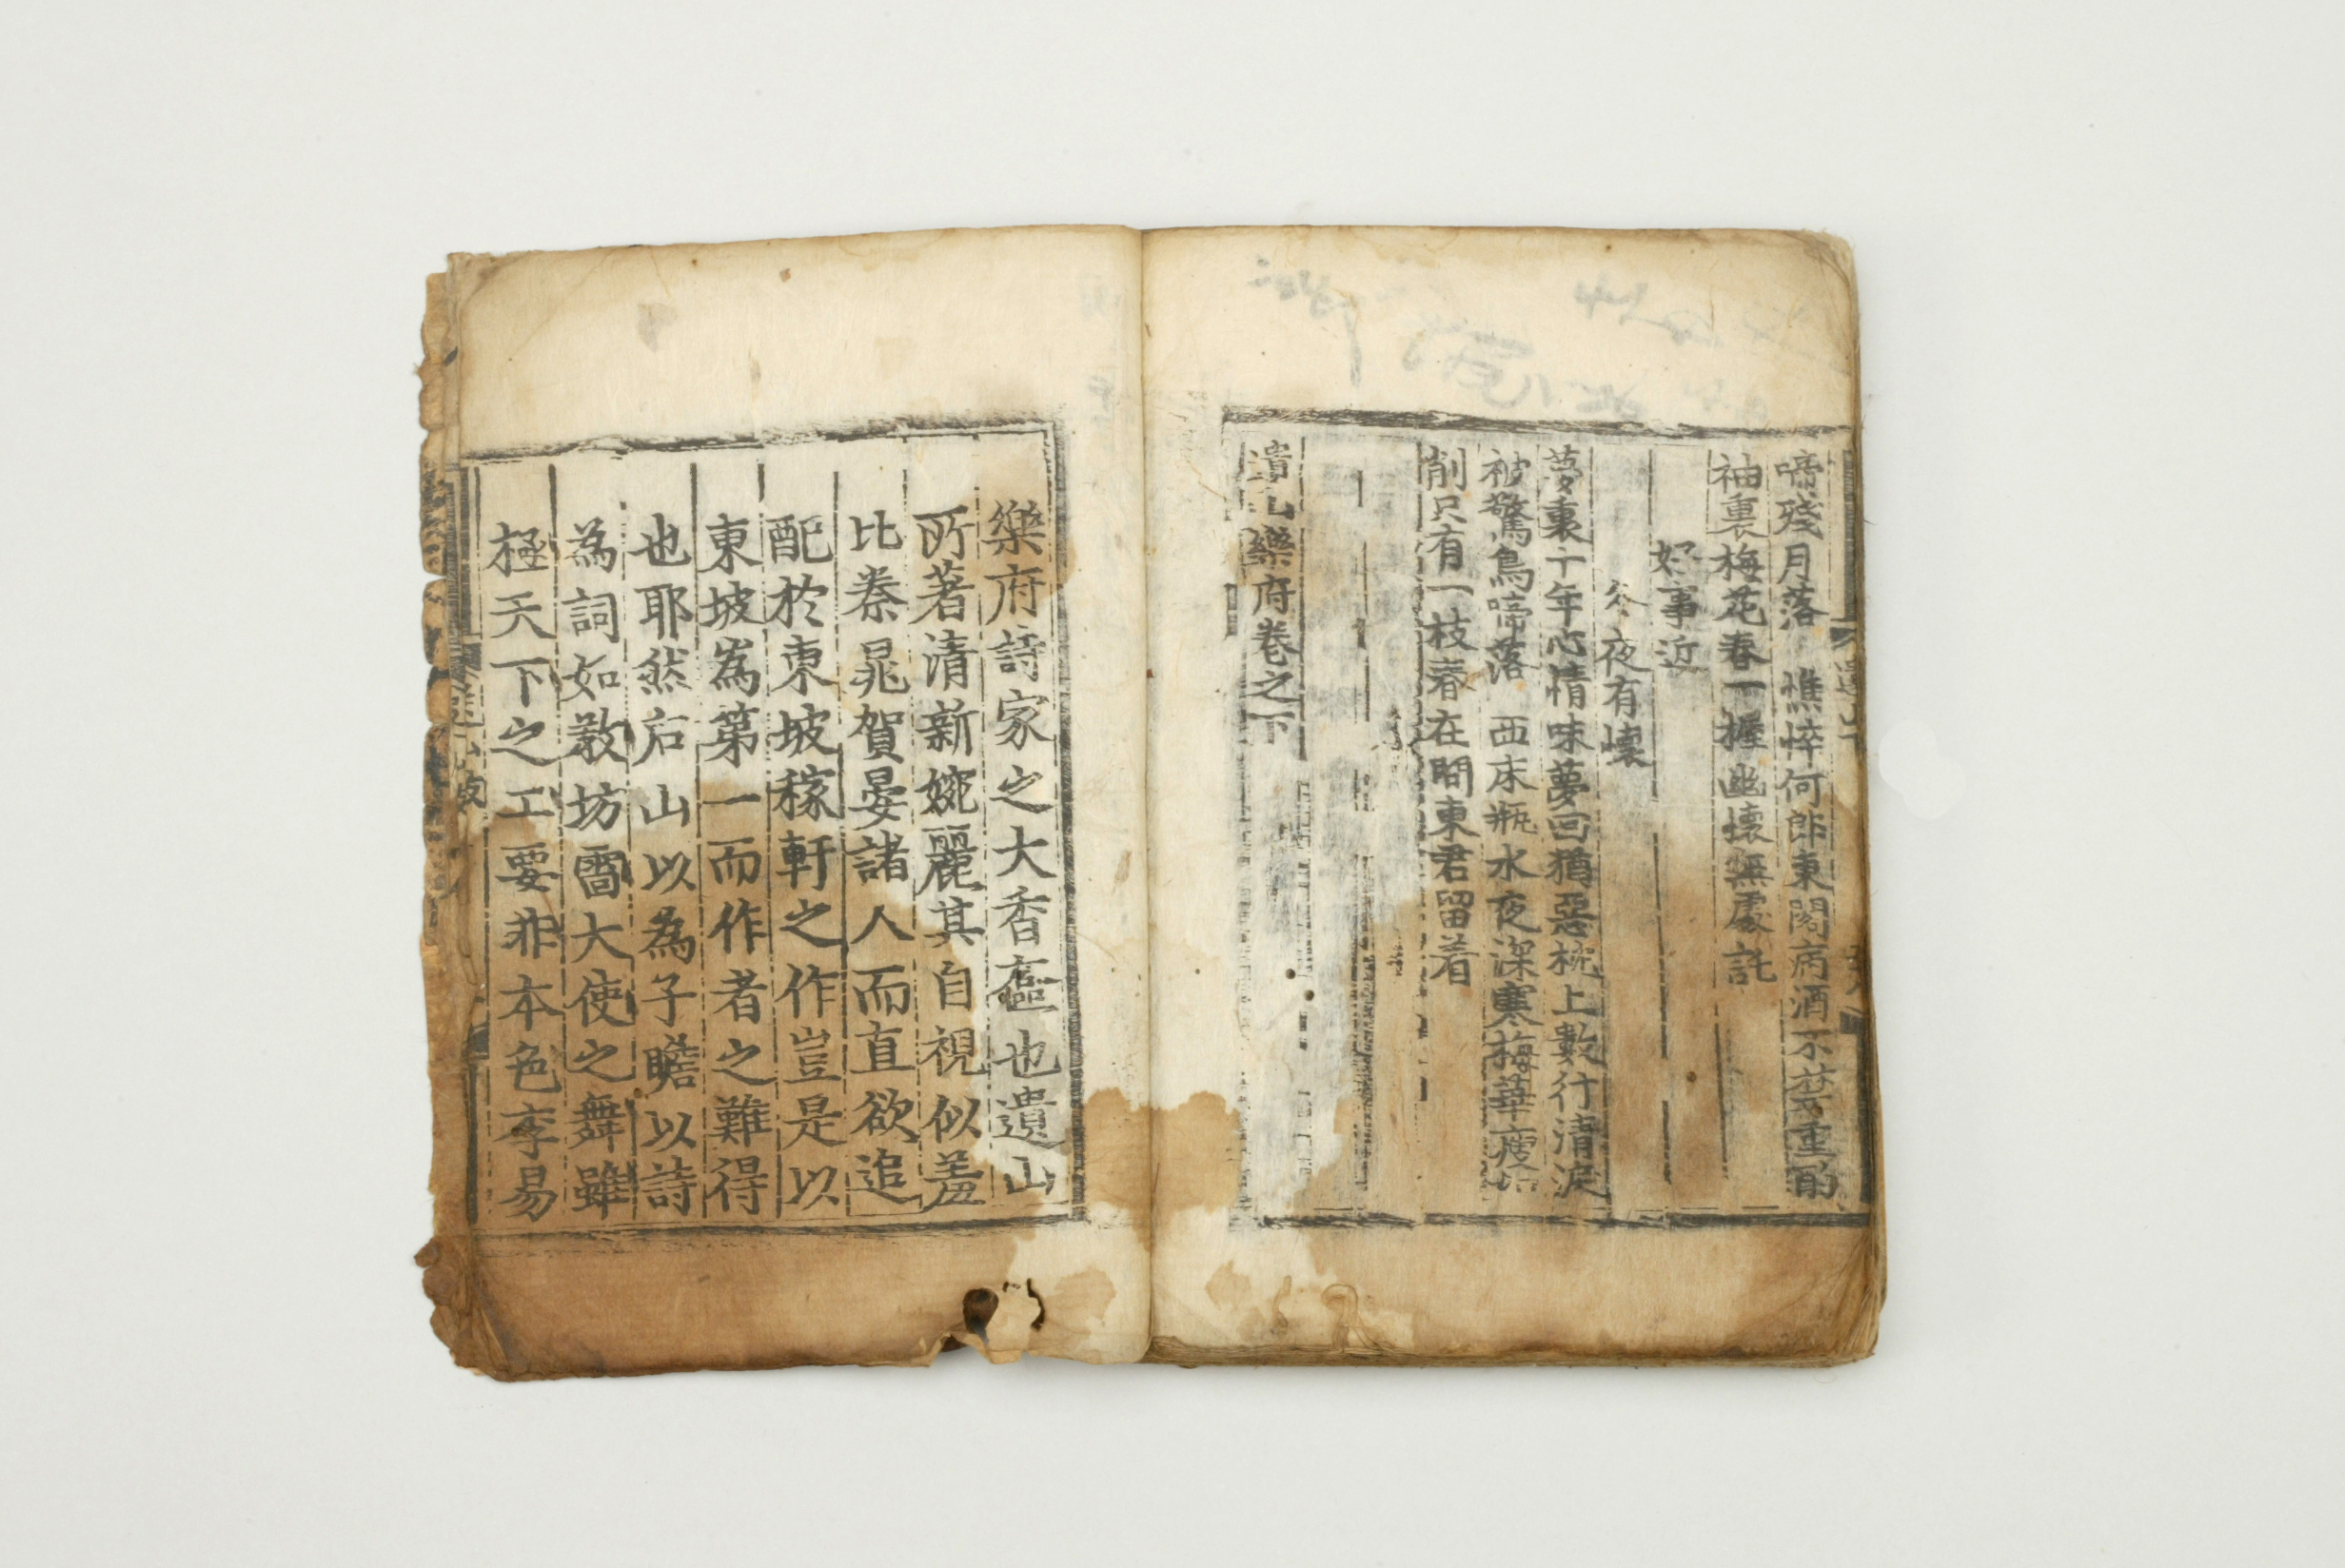 啼殘月落 憔悴何郎東閣病酒不禁重酌
袖裏梅花春一握幽懷無處託
好事近
冬夜有懷
夢裏十年心情味夢回猶惡枕上數行清淚
被驚烏啼落 西床瓶水夜深寒梅華瘦如
削只有一枝春在問東君留着
遺山樂府卷之下
樂府詩家之大香奩也遺山
所著清新婉麗其自視似羞
比秦晁賀晏諸人而直欲追
配於東坡稼軒之作豈是以
東坡爲第一而作者之難得
也耶然后山以爲子瞻以詩
爲詞如教坊雷大使之舞雖
極天下之工要非本色李易